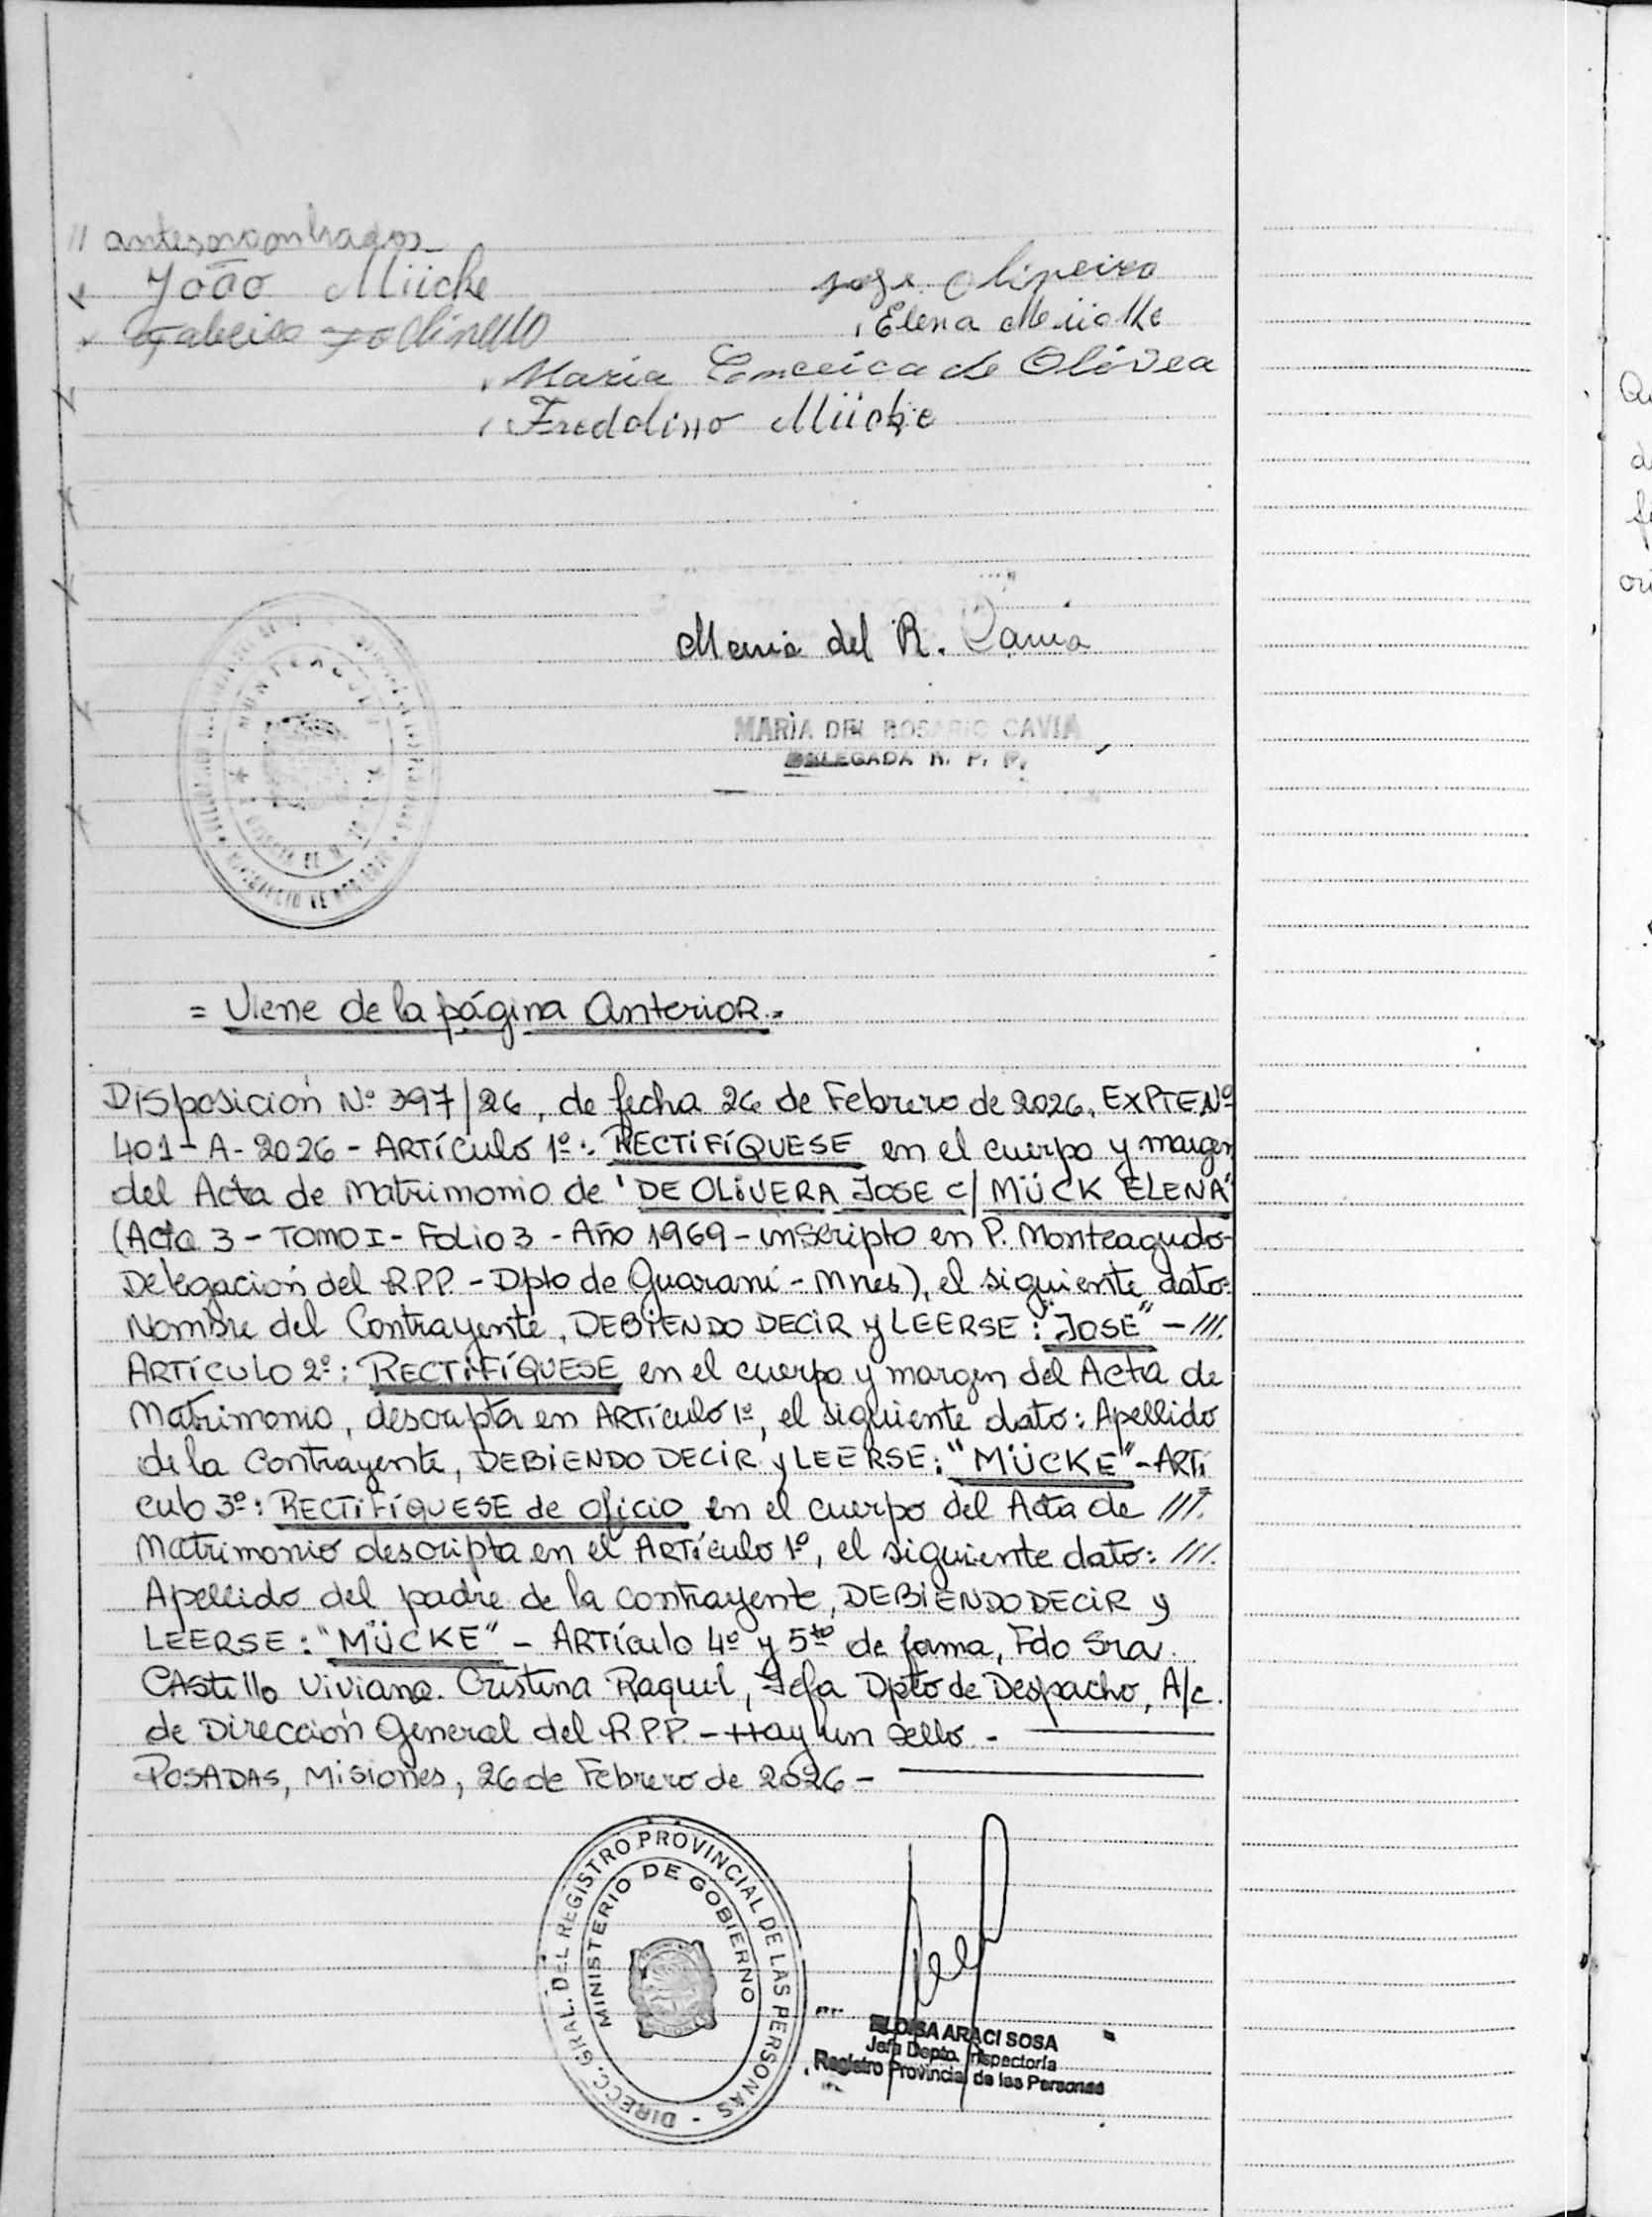 // antesnombrados_
João Mücke
jose Oliveira
Elena Mücke
Maria Conceica de Olivea
Fredolino Mücke
Maria del R. Cavia
MARÌA DEL ROSARIO CAVIA
DELEGADA R. P. P.
MONTEAGUDO
= Viene de la página Anterior.=
Disposición Nº 397/26, de fecha 26 de Febrero de 2026, EXPTE Nº
401-A-2026 - ARTículo 1º: RECTIFÍQUESE en el cuerpo y margen
del Acta de Matrimonio de "DE OLIVERA JOSE c/ MÜCK ELENA"
(Acta 3 - TOMO I - Folio 3 - Año 1969 - inscripto en P. Monteagudo-
Delegación del R.P.P. - Dpto de Guaraní - Mnes), el siguiente dato:
Nombre del Contrayente, DEBIENDO DECIR y LEERSE: "JOSÉ" - ///.
ARTÍCULO 2º: RECTIFÍQUESE en el cuerpo y margen del Acta de
Matrimonio, descripta en ARTículo 1º, el siguiente dato: Apellido
de la Contrayente, DEBIENDO DECIR y LEERSE: "MÜCKE" - ARTí
culo 3º: RECTIFÍQUESE de oficio en el cuerpo del Acta de ///.
Matrimonio descripta en el Artículo 1º, el siguiente dato: ///.
Apellido del padre de la contrayente, DEBIENDO DECIR y
LEERSE: "MÜCKE" - ARTículo 4º y 5to de forma, Fdo Sra.
CAstillo Viviana Cristina Raquel, Jefa Dpto de Despacho, A/c.
de Dirección General del R.P.P. - Hay un sello -
POSADAS, Misiones, 26 de Febrero de 2026 -
DIRECC. GRAL. DEL REGISTRO PROVINCIAL DE LAS PERSONAS -
MINISTERIO DE GOBIERNO
ELOISA ARACI SOSA
Jefa Depto. Inspectoría
Registro Provincial de las Personas